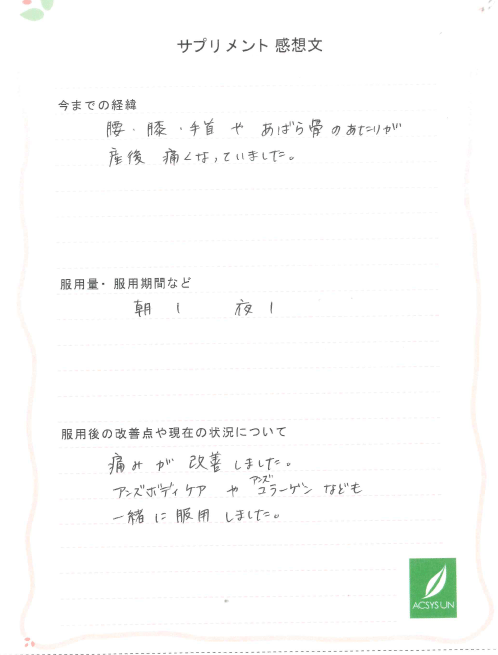 サプリメント 感想文
今までの経緯
腰・膝・手首 や あばら骨のあたりが
産後 痛くなっていました。
服用量・服用期間など
朝 1 夜 1
服用後の改善点や現在の状況について
痛み が 改善 しました。
アンズ
アンズボディケア や コラーゲン なども
一緒 に 服用 しました。
ACSYSUN